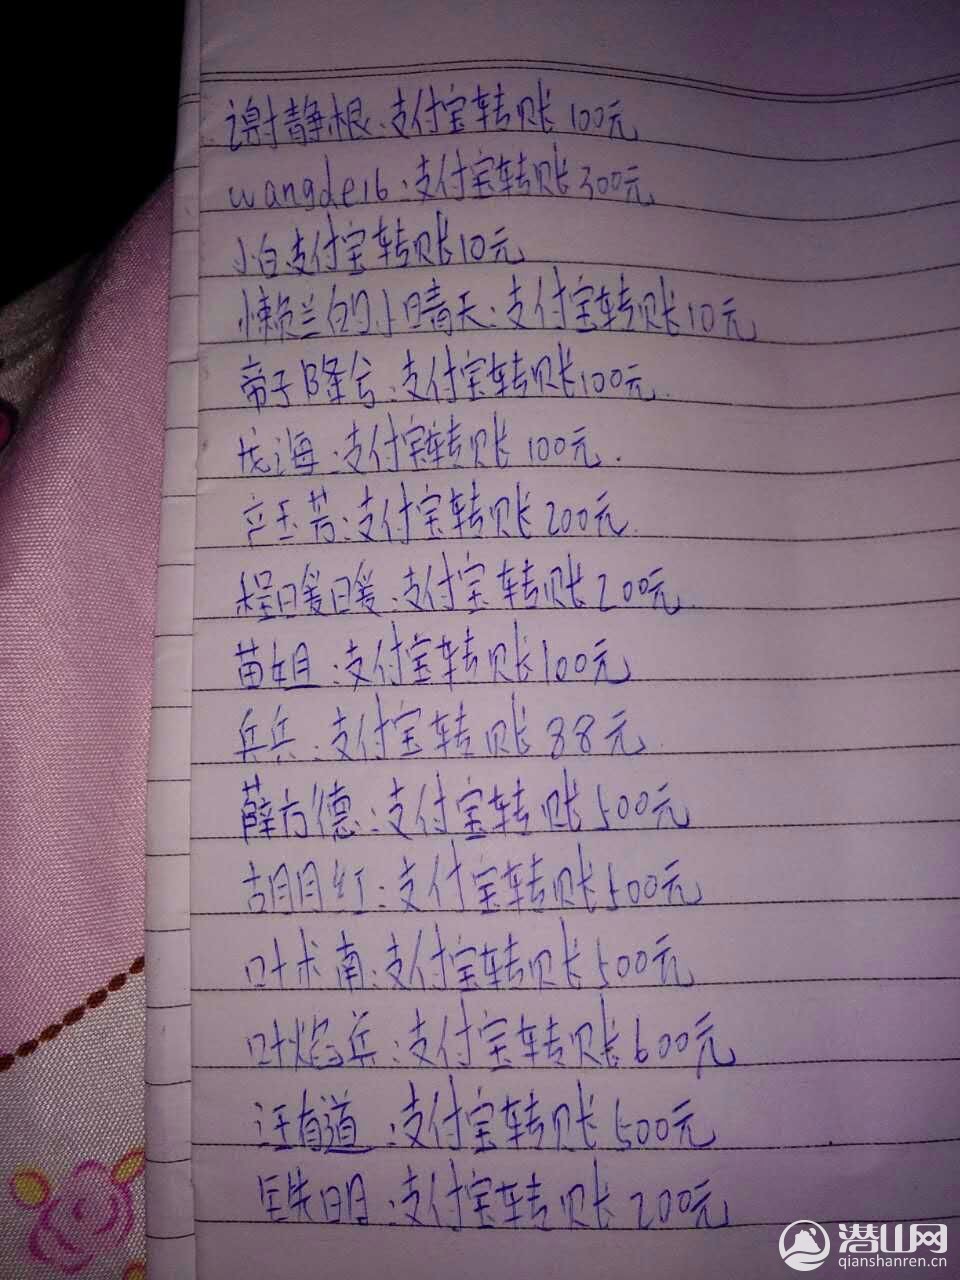 谢静根:支付宝转账100元
wangde16:支付宝转账300元
小白支付宝转账10元
懒懒兰的小晴天:支付宝转账10元
帝子降兮:支付宝转账100元.
戎海:支付宝转账100元.
玉芳:支付宝转账200元.
程暖暖:支付宝转账200元.
苗姐:支付宝转账100元
兵兵:支付宝转账88元.
薛方德:支付宝转账500元
胡月红:支付宝转账500元
叶术南:支付宝转账500元
叶焰兵:支付宝转账600元
汪有道:支付宝转账500元
明:支付宝转账200元
潜山网
qianshanren.cn